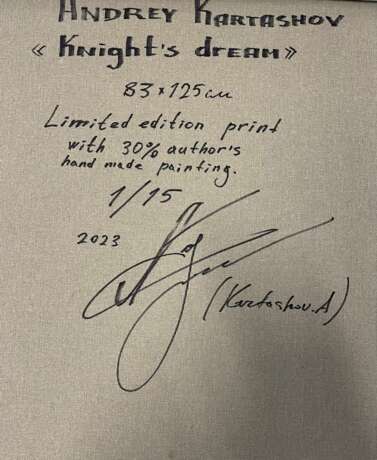 ANDREY KARTASHOV
« Knight's dream»
83 x 125 см
Limited edition print
with 30% author's
hand made painting.
1/15
2023
(Kartashov.A)